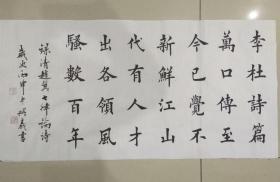 李杜詩
萬口傳至
今已覺不
新鮮江山
代有人才
出各領風
騷數百年
錄清趙翼七律論詩
歲次丙申年
書